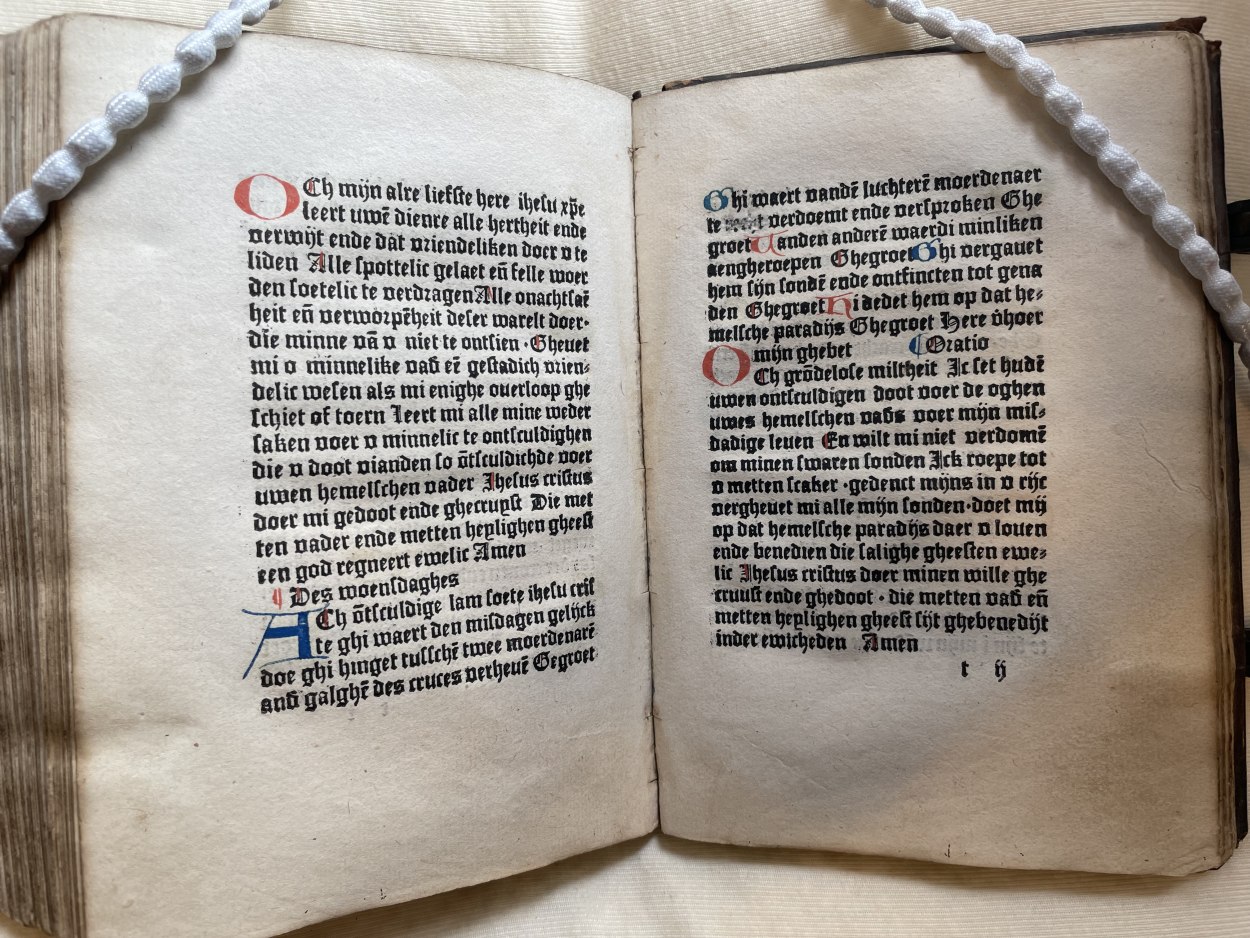 OCh mijn alre liefste here ihesu xp̄e
leert uwē dienre alle hertheit ende
verwijt ende dat vriendeliken doer v te
liden Alle spottelic gelaet eñ felle woer
den soetelic te verdragen Alle onachtsaē
heit eñ verworpēheit deser warelt doer·
die minne vā v niet te ontsien · Gheuet
mi o minnelike vad̄ eē gestadich vrien⸗
delic wesen als mi enighe ouerloop ghe
schiet of toern Leert mi alle mine weder
saken voer v minnelic te ontsculdighen
die v doot vianden so ōtsculdichde voer
uwen hemelschen vader Ihesus cristus
doer mi gedoot ende ghecruyst Die met
ten vader ende metten heylighen gheest
een god regneert ewelic Amen
¶ Des woensdaghes
ACh ōtsculdige lam soete ihesu cris
te ghi waert den misdagen gelijck
doe ghi hinget tusschē twee moerdenarē
and̄ galghē des cruces verheuē Gegroet
Ghi waert vandē luchterē moerdenaer
te verdoemt ende versproken Ghe
groet Vanden anderē waerdi minliken
aengheroepen Ghegroet Ghi vergauet
hem sijn sondē ende ontfincten tot gena
den Ghegroet Hi dedet hem op dat he⸗
melsche paradijs Ghegroet Here v̄hoer
mijn ghebet Oratio
OCh grōdelose miltheit Ic set hudē
uwen ontsculdigen doot voer de oghen
uwes hemelschen vad̄s voer mijn mis⸗
dadige leuen En wilt mi niet verdomē
om minen swaren sonden Ick roepe tot
v metten scaker · gedenct mijns in v rijc
vergheuet mi alle mijn sonden · doet mij
op dat hemelsche paradijs daer v louen
ende benedien die salighe gheesten ewe⸗
lic Ihesus cristus doer minen wille ghe
cruust ende ghedoot · die metten vad̄ eñ
metten heylighen gheest sijt ghebenedijt
inder ewicheden Amen
t ij